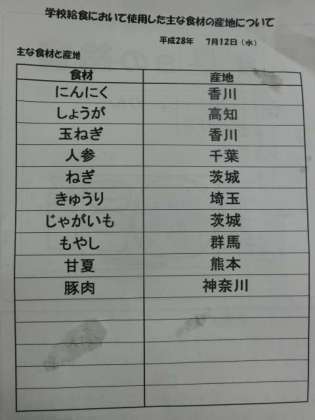 学校給食において使用した主な食材の産地について
平成28年 7月12日（水）
主な食材と産地
食材 産地
にんにく 香川
しょうが 高知
玉ねぎ 香川
人参 千葉
ねぎ 茨城
きゅうり 埼玉
じゃがいも 茨城
もやし 群馬
甘夏 熊本
豚肉 神奈川